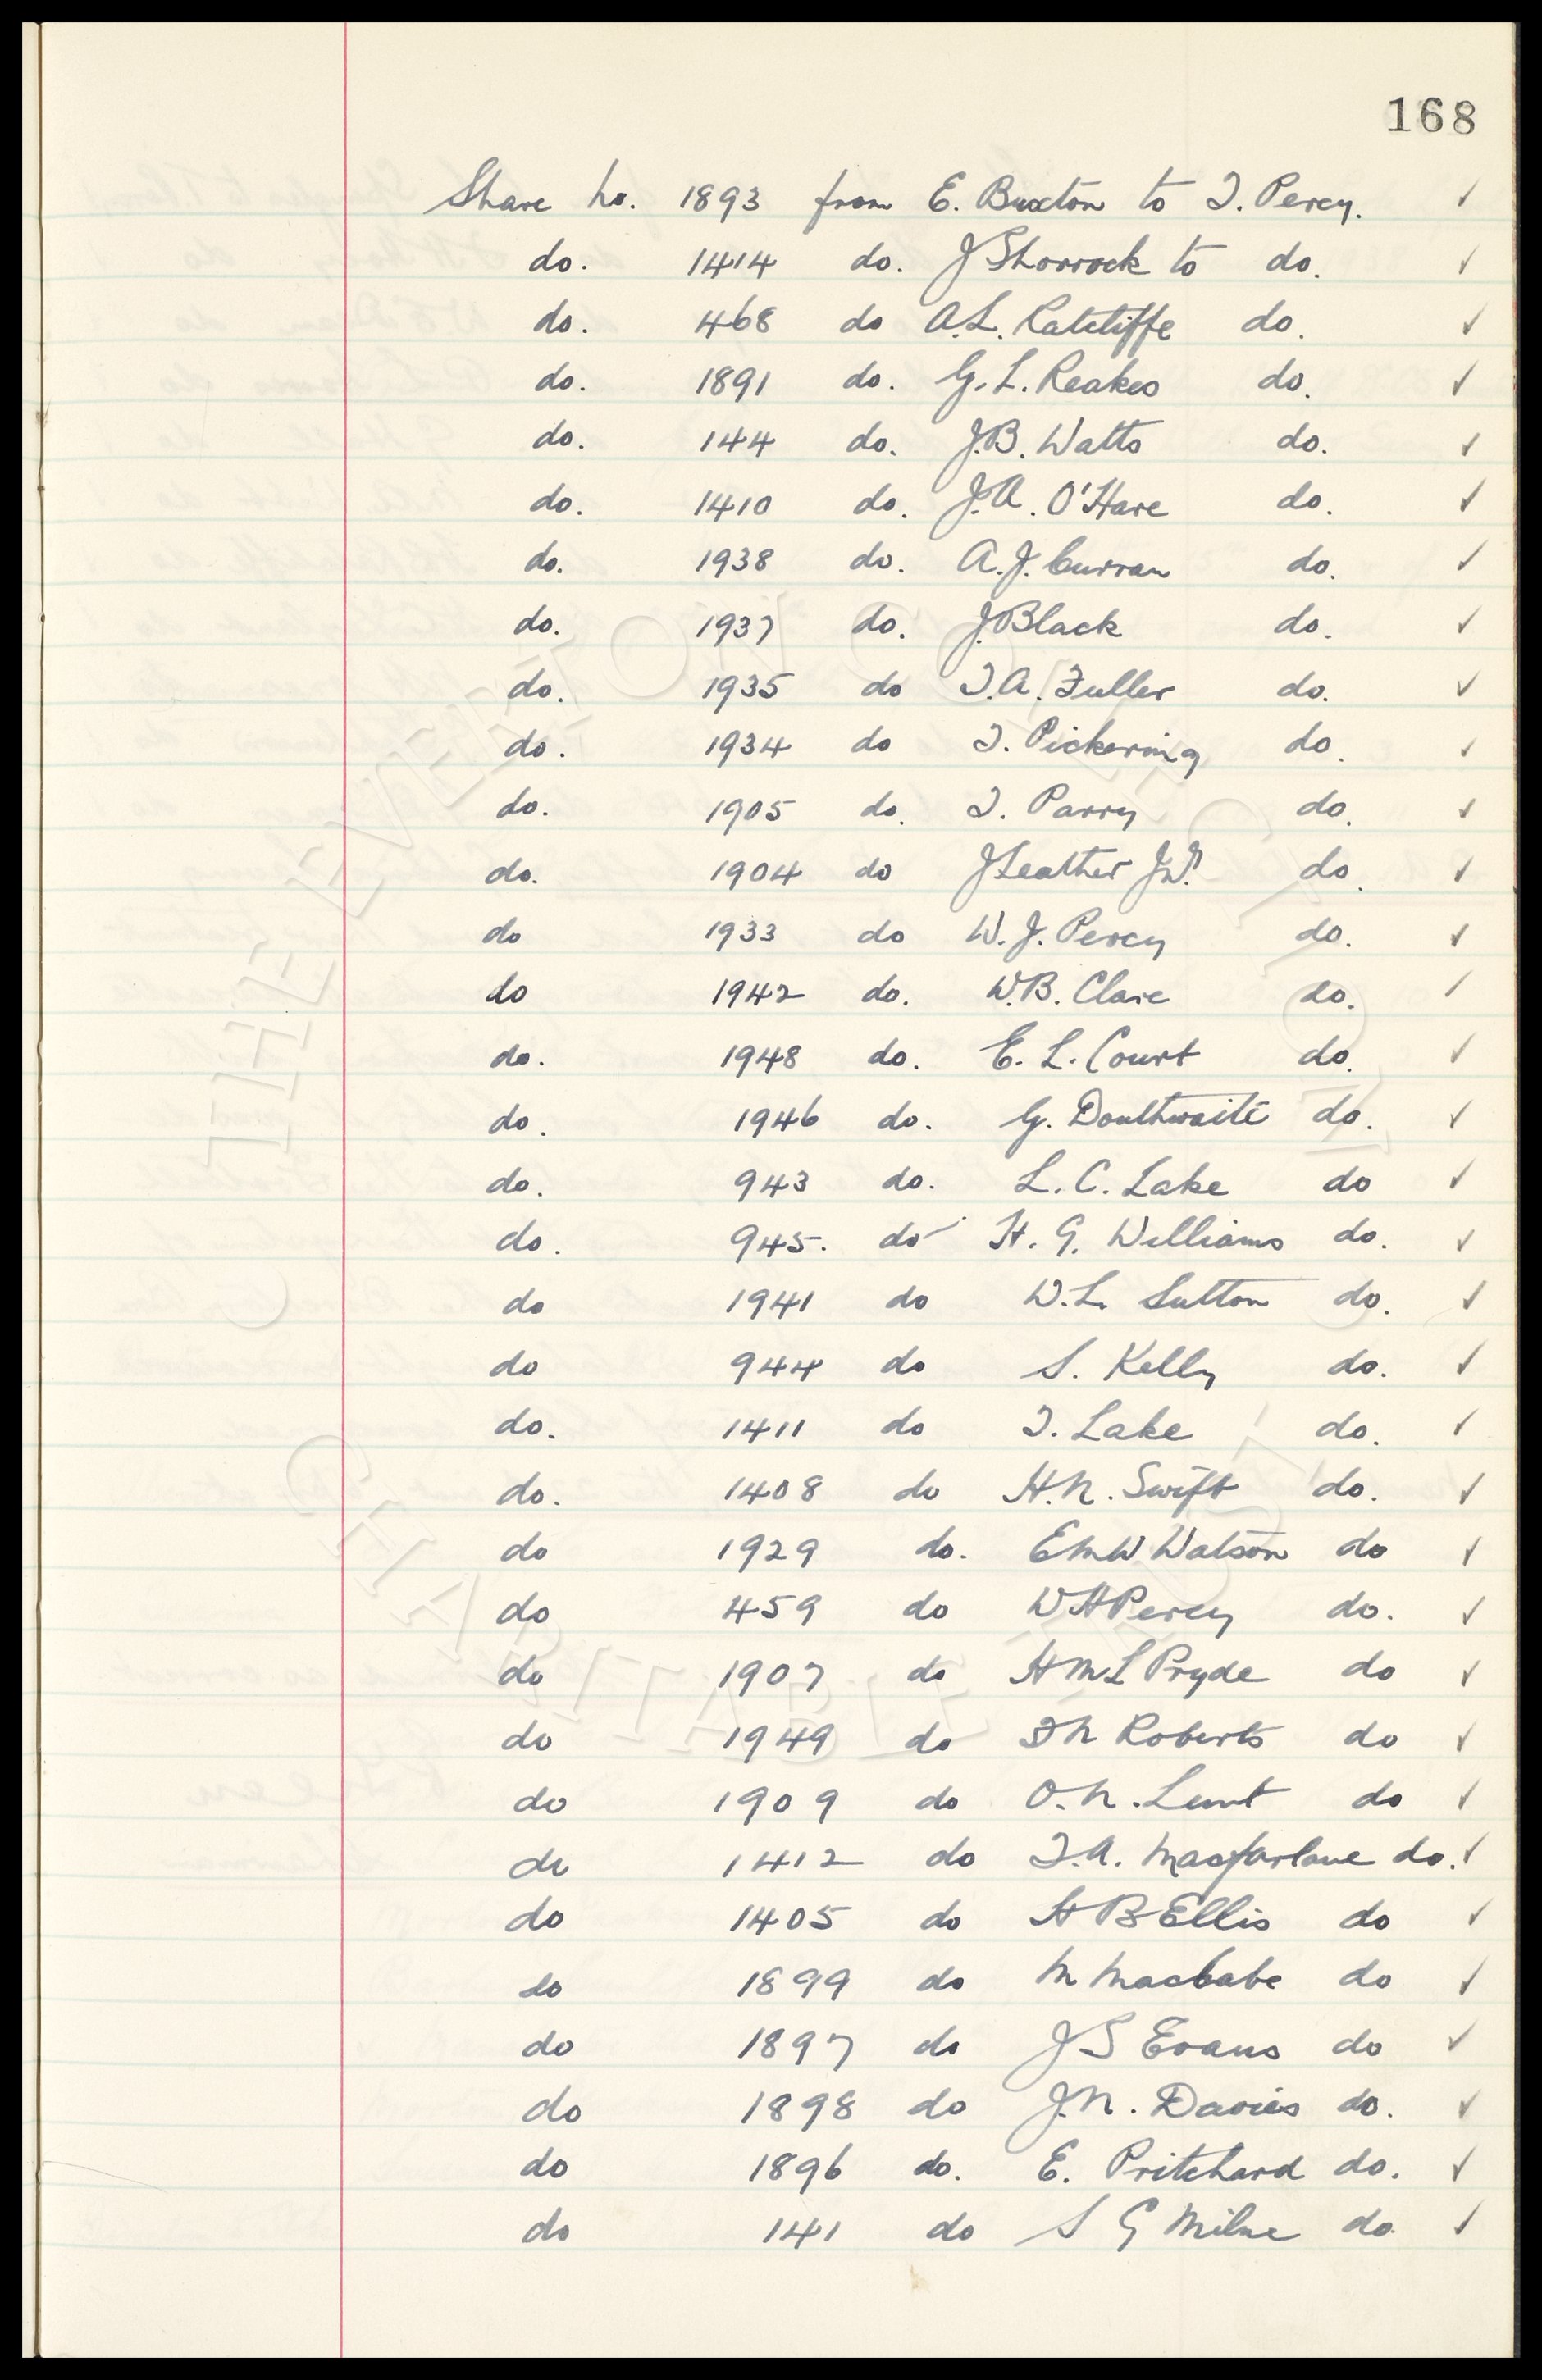 168
Share No. 1893 from E. Buxton to T. Percy. ✓
do. 1414 do. J Shorrock to do. ✓
do. 468 do A.L. Ratcliffe do. ✓
do. 1891 do. G. L. Reakes do. ✓
do. 144 do. J.B. Watts do. ✓
do. 1410 do. J.A. O'Hare do. ✓
do. 1938 do. A.J. Curran do. ✓
do. 1937 do. J Black do. ✓
do. 1935 do T.A. Fuller do. ✓
do. 1934 do T. Pickering do. ✓
do. 1905 do. T. Parry do. ✓
do. 1904 do J Leather do. ✓
do 1933 do W. J. Percy do. ✓
do 1942 do. W.B. Clare do. ✓
do. 1948 do. E. L. Court do. ✓
do. 1946 do. G. Douthwaite do. ✓
do. 943 do. L. C. Lake do ✓
do. 945. do H. G. Williams do. ✓
do 1941 do W.L. Sutton do. ✓
do 944 do S. Kelly do. ✓
do. 1411 do T. Lake do. ✓
do. 1408 do H.N. Swift do. ✓
do 1929 do. E M W Watson do ✓
do 459 do W H Percy do. ✓
do 1907 do H M L Pryde do ✓
do 1949 do F N Roberts do ✓
do 1909 do O. N. Lunt do ✓
do 1412 do T.A. Macfarlane do. ✓
do 1405 do H B Ellis do ✓
do 1899 do M MacCabe do ✓
do 1897 do J S Evans do ✓
do 1898 do J.N. Davies do. ✓
do 1896 do. E. Pritchard do. ✓
do 141 do S G Milne do. ✓